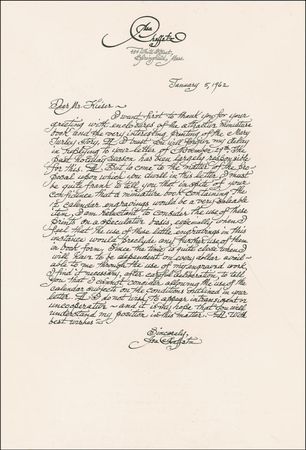 John
DePol
January 5, 1962
Dear Mr. Kieser —
I want first to thank you for your
greeting with enclosures of the attractive miniature
book and the very interesting printing of the Mary
Surley Story. I trust you will forgive my delay
in replying to your letter of November 29. The
past Holiday Season has been largely responsible
for this. But to come to the matter of the pro-
posal upon which you dwell in this letter, I must
be quite frank to tell you that in spite of your
confidence that a miniature book containing the
12 calendar engravings would be a very saleable
item, I am reluctant to consider the use of these
prints on a speculative basis, especially when I
feel that the use of these little engravings in this
instance would preclude any further use of them
in book form. Since the time is quite close when I
will have to be dependent on every dollar avail-
able to me through the use of my engraved work,
I find it necessary, after careful deliberation, to tell
you that I cannot consider allowing the use of the
calendar subjects on the conditions outlined in your
letter. I do not wish to appear intransigent or
uncooperative — and it is my hope that you will
understand my position in this matter. All with
best wishes —
Sincerely,